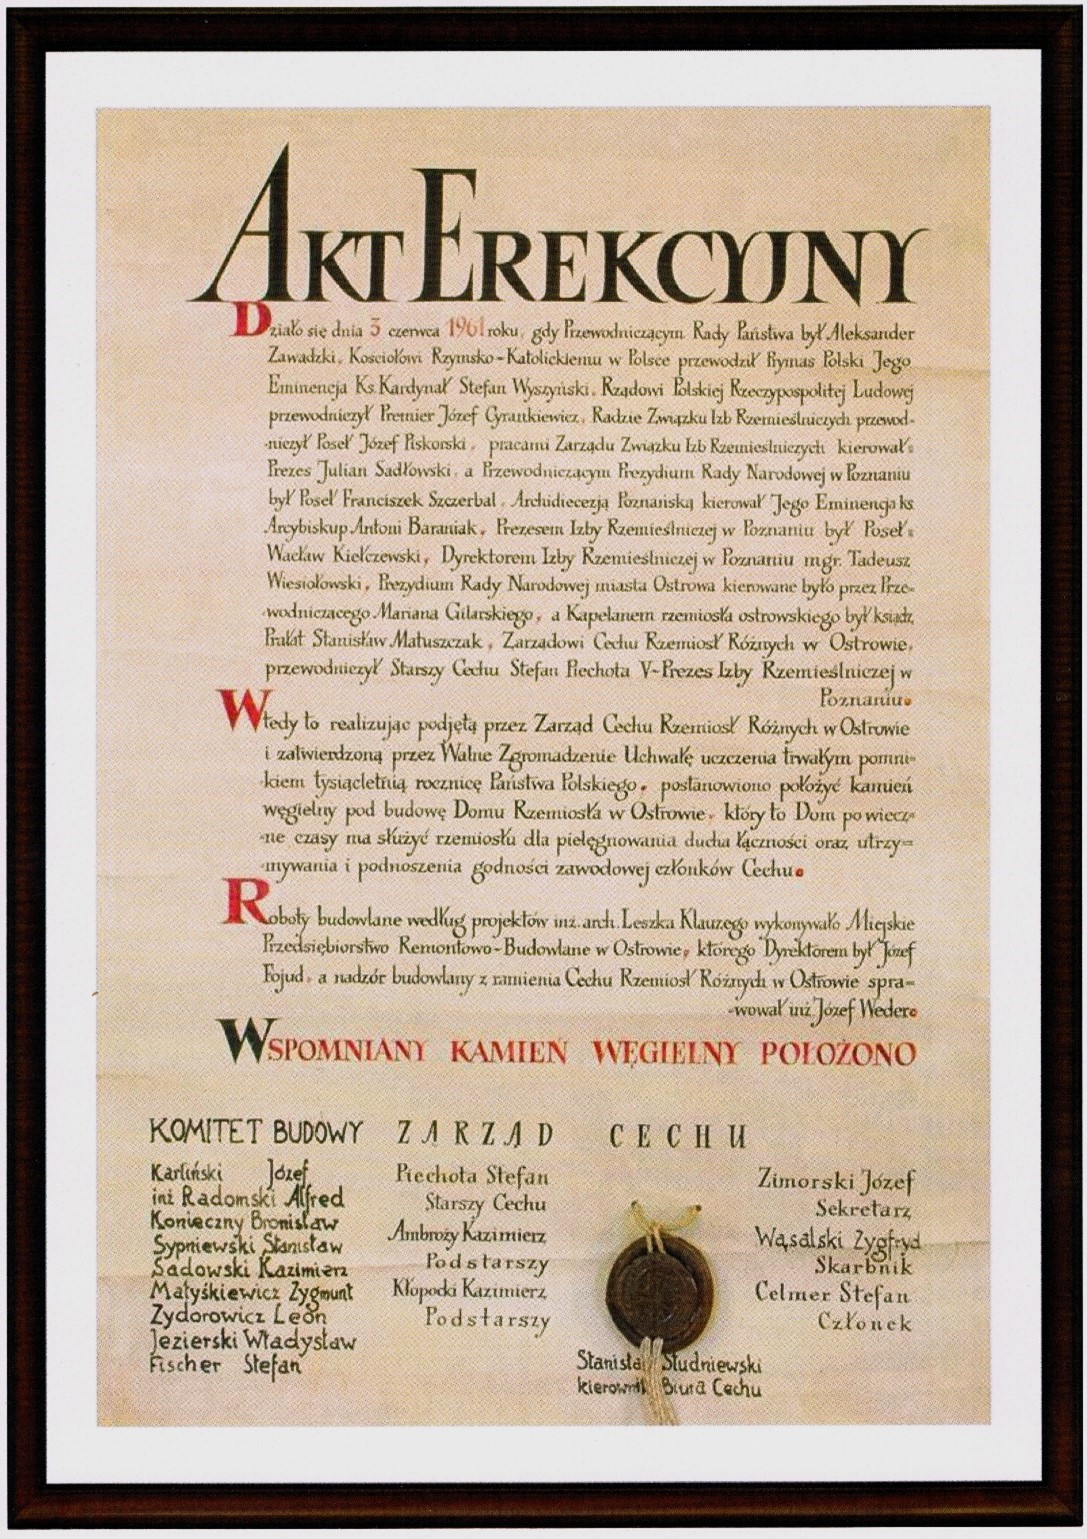 AKT EREKCYJNY
Działo się dnia 3 czerwca 1961 roku, gdy Przewodniczącym Rady Państwa był Aleksander
Zawadzki, Kosciołowi Rzymsko-Katolickiemu w Polsce przewodził Prymas Polski Jego
Eminencja Ks. Kardynał Stefan Wyszyński, Rządowi Polskiej Rzeczypospolitej Ludowej
przewodniczył Premier Józef Cyrankiewicz, Radzie Związku Izb Rzemieślniczych przewod-
-niczył Poseł Józef Piskorski, pracami Zarządu Związku Izb Rzemieslniczych kierował
Prezes Julian Sadłowski, a Przewodniczącym Prezydium Rady Narodowej w Poznaniu
był Poseł Franciszek Szczerbal, Archidiecezją Poznańską kierował Jego Eminencja ks.
Arcybiskup Antoni Baraniak, Prezesem Izby Rzemieślniczej w Poznaniu był Poseł
Wacław Kiełczewski, Dyrektorem Izby Rzemieślniczej w Poznaniu mgr. Tadeusz
Wiesiołowski, Prezydium Rady Narodowej miasta Ostrowa kierowane było przez Prze-
-wodniczącego Mariana Gilarskiego, a Kapelanem rzemiosła ostrowskiego był ksiądz
Prałat Stanisław Matuszczak, Zarządowi Cechu Rzemiosł Różnych w Ostrowie,
przewodniczył Starszy Cechu Stefan Piechota V-Prezes Izby Rzemieślniczej w
Poznaniu.
Wtedy to realizując podjętą przez Zarząd Cechu Rzemiosł Różnych w Ostrowie
i zatwierdzoną przez Walne Zgromadzenie Uchwałę uczczenia trwałym pomni-
-kiem tysiącletnią rocznicę Państwa Polskiego, postanowiono położyć kamień
węgielny pod budowę Domu Rzemiosła w Ostrowie, który to Dom po wiecz-
-ne czasy ma służyć rzemiosłu dla pielęgnowania ducha łączności oraz utrzy-
-mywania i podnoszenia godności zawodowej członków Cechu.
Roboty budowlane według projektów inż. arch. Leszka Klauzego wykonywało Miejskie
Przedsiębiorstwo Remontowo-Budowlane w Ostrowie, którego Dyrektorem był Józef
Fojud, a nadzór budowlany z ramienia Cechu Rzemiosł Różnych w Ostrowie spra-
-wował inż. Józef Weder.
WSPOMNIANY KAMIEN WĘGIELNY POŁOŻONO
KOMITET BUDOWY
Karliński Józef
inż Radomski Alfred
Konieczny Bronisław
Sypniewski Stanisław
Sadowski Kazimierz
Matyśkiewicz Zygmunt
Zydorowicz Leon
Jezierski Władysław
Fischer Stefan
ZARZĄD CECHU
Piechota Stefan
Starszy Cechu
Ambroży Kazimierz
Podstarszy
Kłopocki Kazimierz
Podstarszy
Zimorski Józef
Sekretarz
Wąsalski Zygfryd
Skarbnik
Celmer Stefan
Członek
Stanisła Studniewski
kierownik Biura Cechu